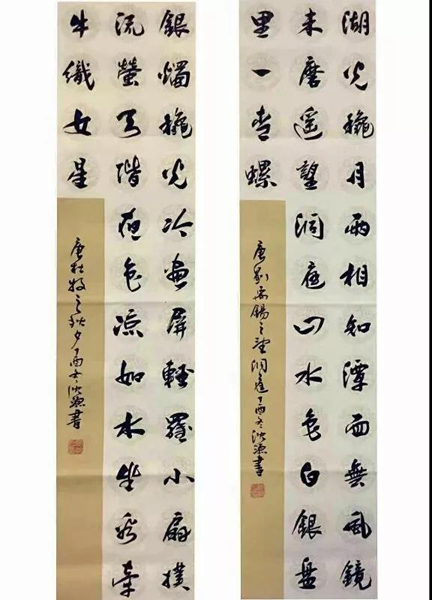 湖光秋月兩相和潭面無風鏡
未磨遙望洞庭山水色白銀盤
里一青螺
唐劉禹錫之望洞庭丁酉冬書
銀燭秋光冷畫屏輕羅小扇撲
流螢天階夜色涼如水坐看牽
牛織女星
唐杜牧之秋夕丁酉冬書